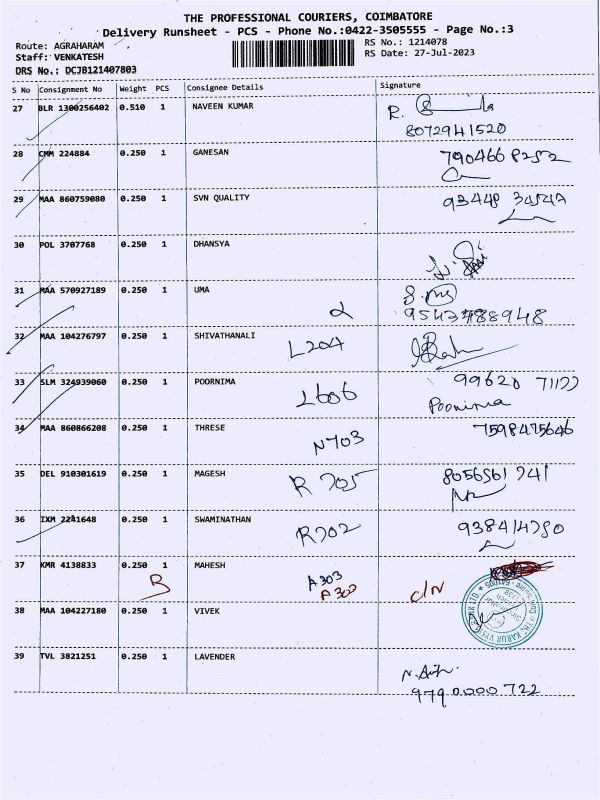 THE PROFESSIONAL COURIERS, COIMBATORE
Delivery Runsheet - PCS - Phone No.:0422-3505555 - Page No.:3
Route: AGRAHARAM RS No.: 1214078
Staff: VENKATESH RS Date: 27-Jul-2023
DRS No.: DCJB121407803
S No Consignment No Weight PCS Consignee Details Signature
27 BLR 1300256402 0.510 1 NAVEEN KUMAR
8072941520
28 CMM 224884 0.250 1 GANESAN
29 MAA 860759080 0.250 1 SVN QUALITY
30 POL 3707768 0.250 1 DHANSYA
31 MAA 570927189 0.250 1 UMA
32 MAA 104276797 0.250 1 SHIVATHANALI L204
33 SLM 324939060 0.250 1 POORNIMA L606 99620 71177
Poornima
34 MAA 860866208 0.250 1 THRESE N703 7598475646
35 DEL 910301619 0.250 1 MAGESH R 705 8056561741
36 IXM 2241648 0.250 1 SWAMINATHAN R702 938414750
37 KMR 4138833 0.250 1 MAHESH A303
B A300 C/N
38 MAA 104227180 0.250 1 VIVEK
39 TVL 3821251 0.250 1 LAVENDER
9790000722